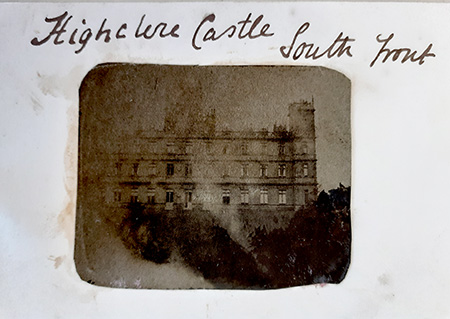 Highclere Castle South Front